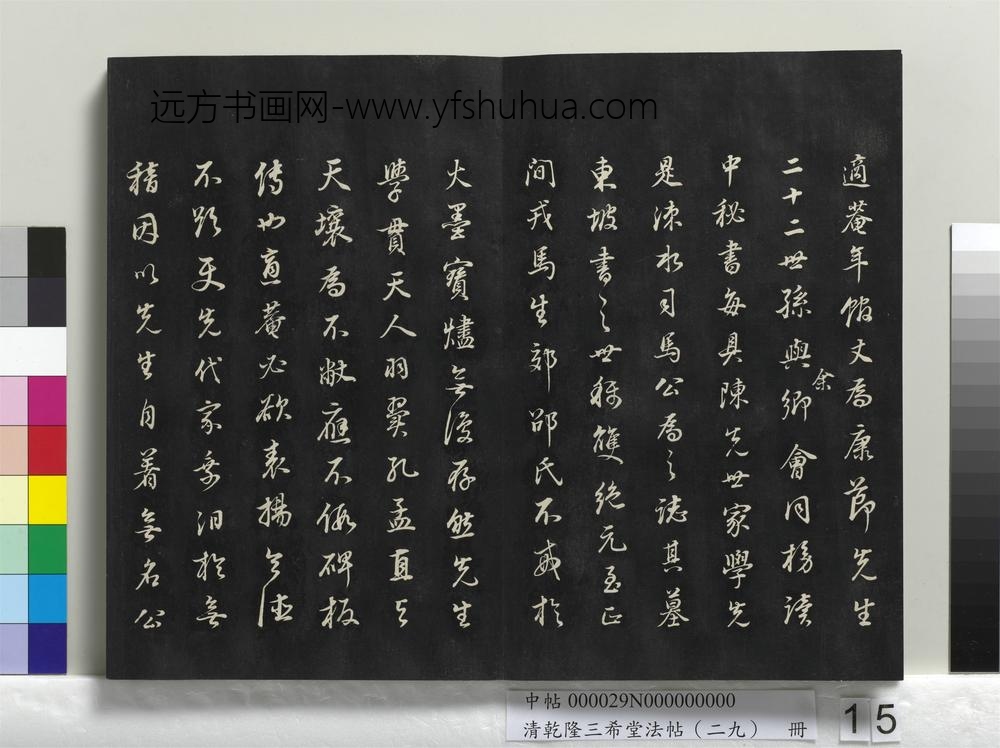 適菴年丈為康節先生
二十二世孫與余鄉會同榜讀
中秘書每具陳先世家學先
是涑水司馬公為之誌其墓
東坡書之世稱雙絕元至正
間戎馬生郊邵氏不戒於
火墨寶燼無復存然先生
學貫天人羽翼孔孟直與
天壤為不敝應不假碑板
傳也適菴必欲表揚令德
不先代家乘汨於無
稽因以先生自著無名公
远方书画网-www.yfshuhua.com
中帖 000029N000000000
清乾隆三希堂法帖（二九） 冊
15